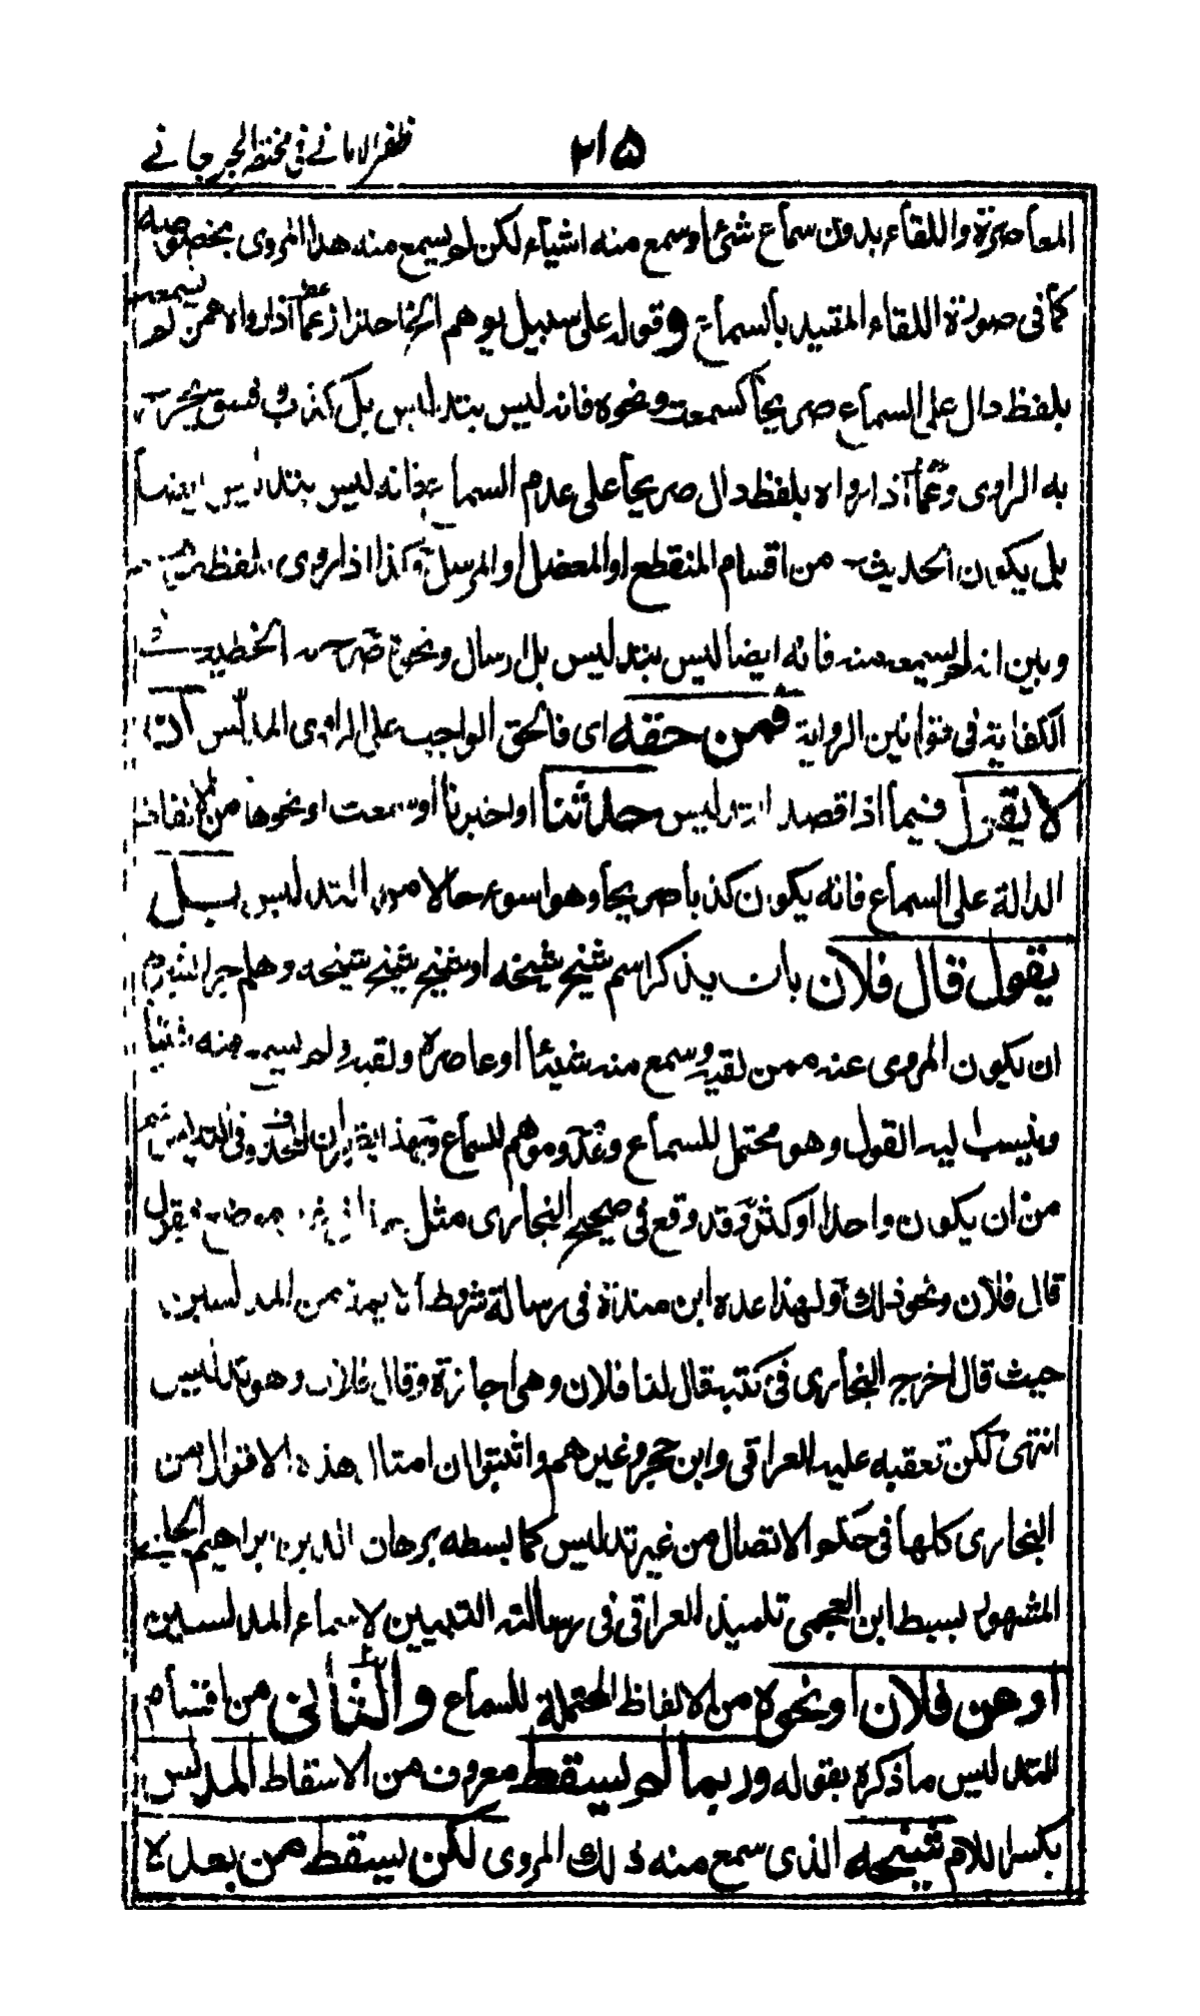 ٢١٥ ظفر الامانے فی مختصر الجرجانے
المعاصرة واللقاء بدون سماع شئ او سمع منه اشياء لكن لم يسمع منه هذا المروى بخصوصه
كما فى صورة اللقاء المقيد بالسماع وقوله على سبيل يوهم الخ احترازا عما اذا رواه عمن لم يسمعه
بلفظ دال على السماع صريحا كسمعت ونحوه فانه ليس بتدليس بل كذب وفسق يجرح
به الراوى وعما اذا رواه بلفظ دال صريحا على عدم السماع فانه ليس بتدليس ايضا
بل يكون الحديث من اقسام المنقطع او المعضل او المرسل وكذا اذا روى بلفظ
وبين انه لم يسمعه منه فانه ايضا ليس بتدليس بل ارسال ونحوه صرح به الخطيب فى
الكفاية فى قوانين الرواية فمن حقه اى فالحق الواجب على الراوى المدلس ان
لا يقول فيما اذا قصد التدليس حدثنا او اخبرنا او سمعت او نحوها من الالفاظ
الدالة على السماع فانه يكون كذبا صريحا وهو اسوء حالا من التدليس بل
يقول قال فلان بان يذكر اسم شيخ شيخه او شيخ شيخ شيخه وهلم جرا بشرط
ان يكون المروى عنه ممن لقيه وسمع منه شيئا او عاصره ولقيه ولم يسمع منه شيئا
وينسب اليه القول وهو محتمل للسماع وعدمه وموهم للسماع وبهذا المحذوف فى التدليس اعم
من ان يكون واحدا او كثر وقد وقع فى صحيح البخارى مثل هذا فى مواضع يقول
قال فلان ونحو ذلك ولهذا عده ابن مندة فى رسالة شروط الائمة من المدلسين
حيث قال اخرج البخارى فى كتبه قال لنا فلان وهى اجازة وقال فلان وهو تدليس
انتهى لكن تعقبه عليه العراقى وابن حجر وغيرهم واثبتوا ان امثال هذه الاقوال من
البخارى كلها فى حكم الاتصال من غير تدليس كما بسطه برهان الدين ابراهيم الحلبى
المشهور بسبط ابن العجمى تلميذ العراقى فى رسالته التبيين لاسماء المدلسين
او عن فلان او نحوه من الالفاظ المحتملة للسماع والثانى من اقسام
التدليس ما ذكره بقوله وربما لم يسقط معروف من الاسقاط المدلس
بكسر اللام شيخه الذى سمع منه ذلك المروى لكن يسقط من بعده لا